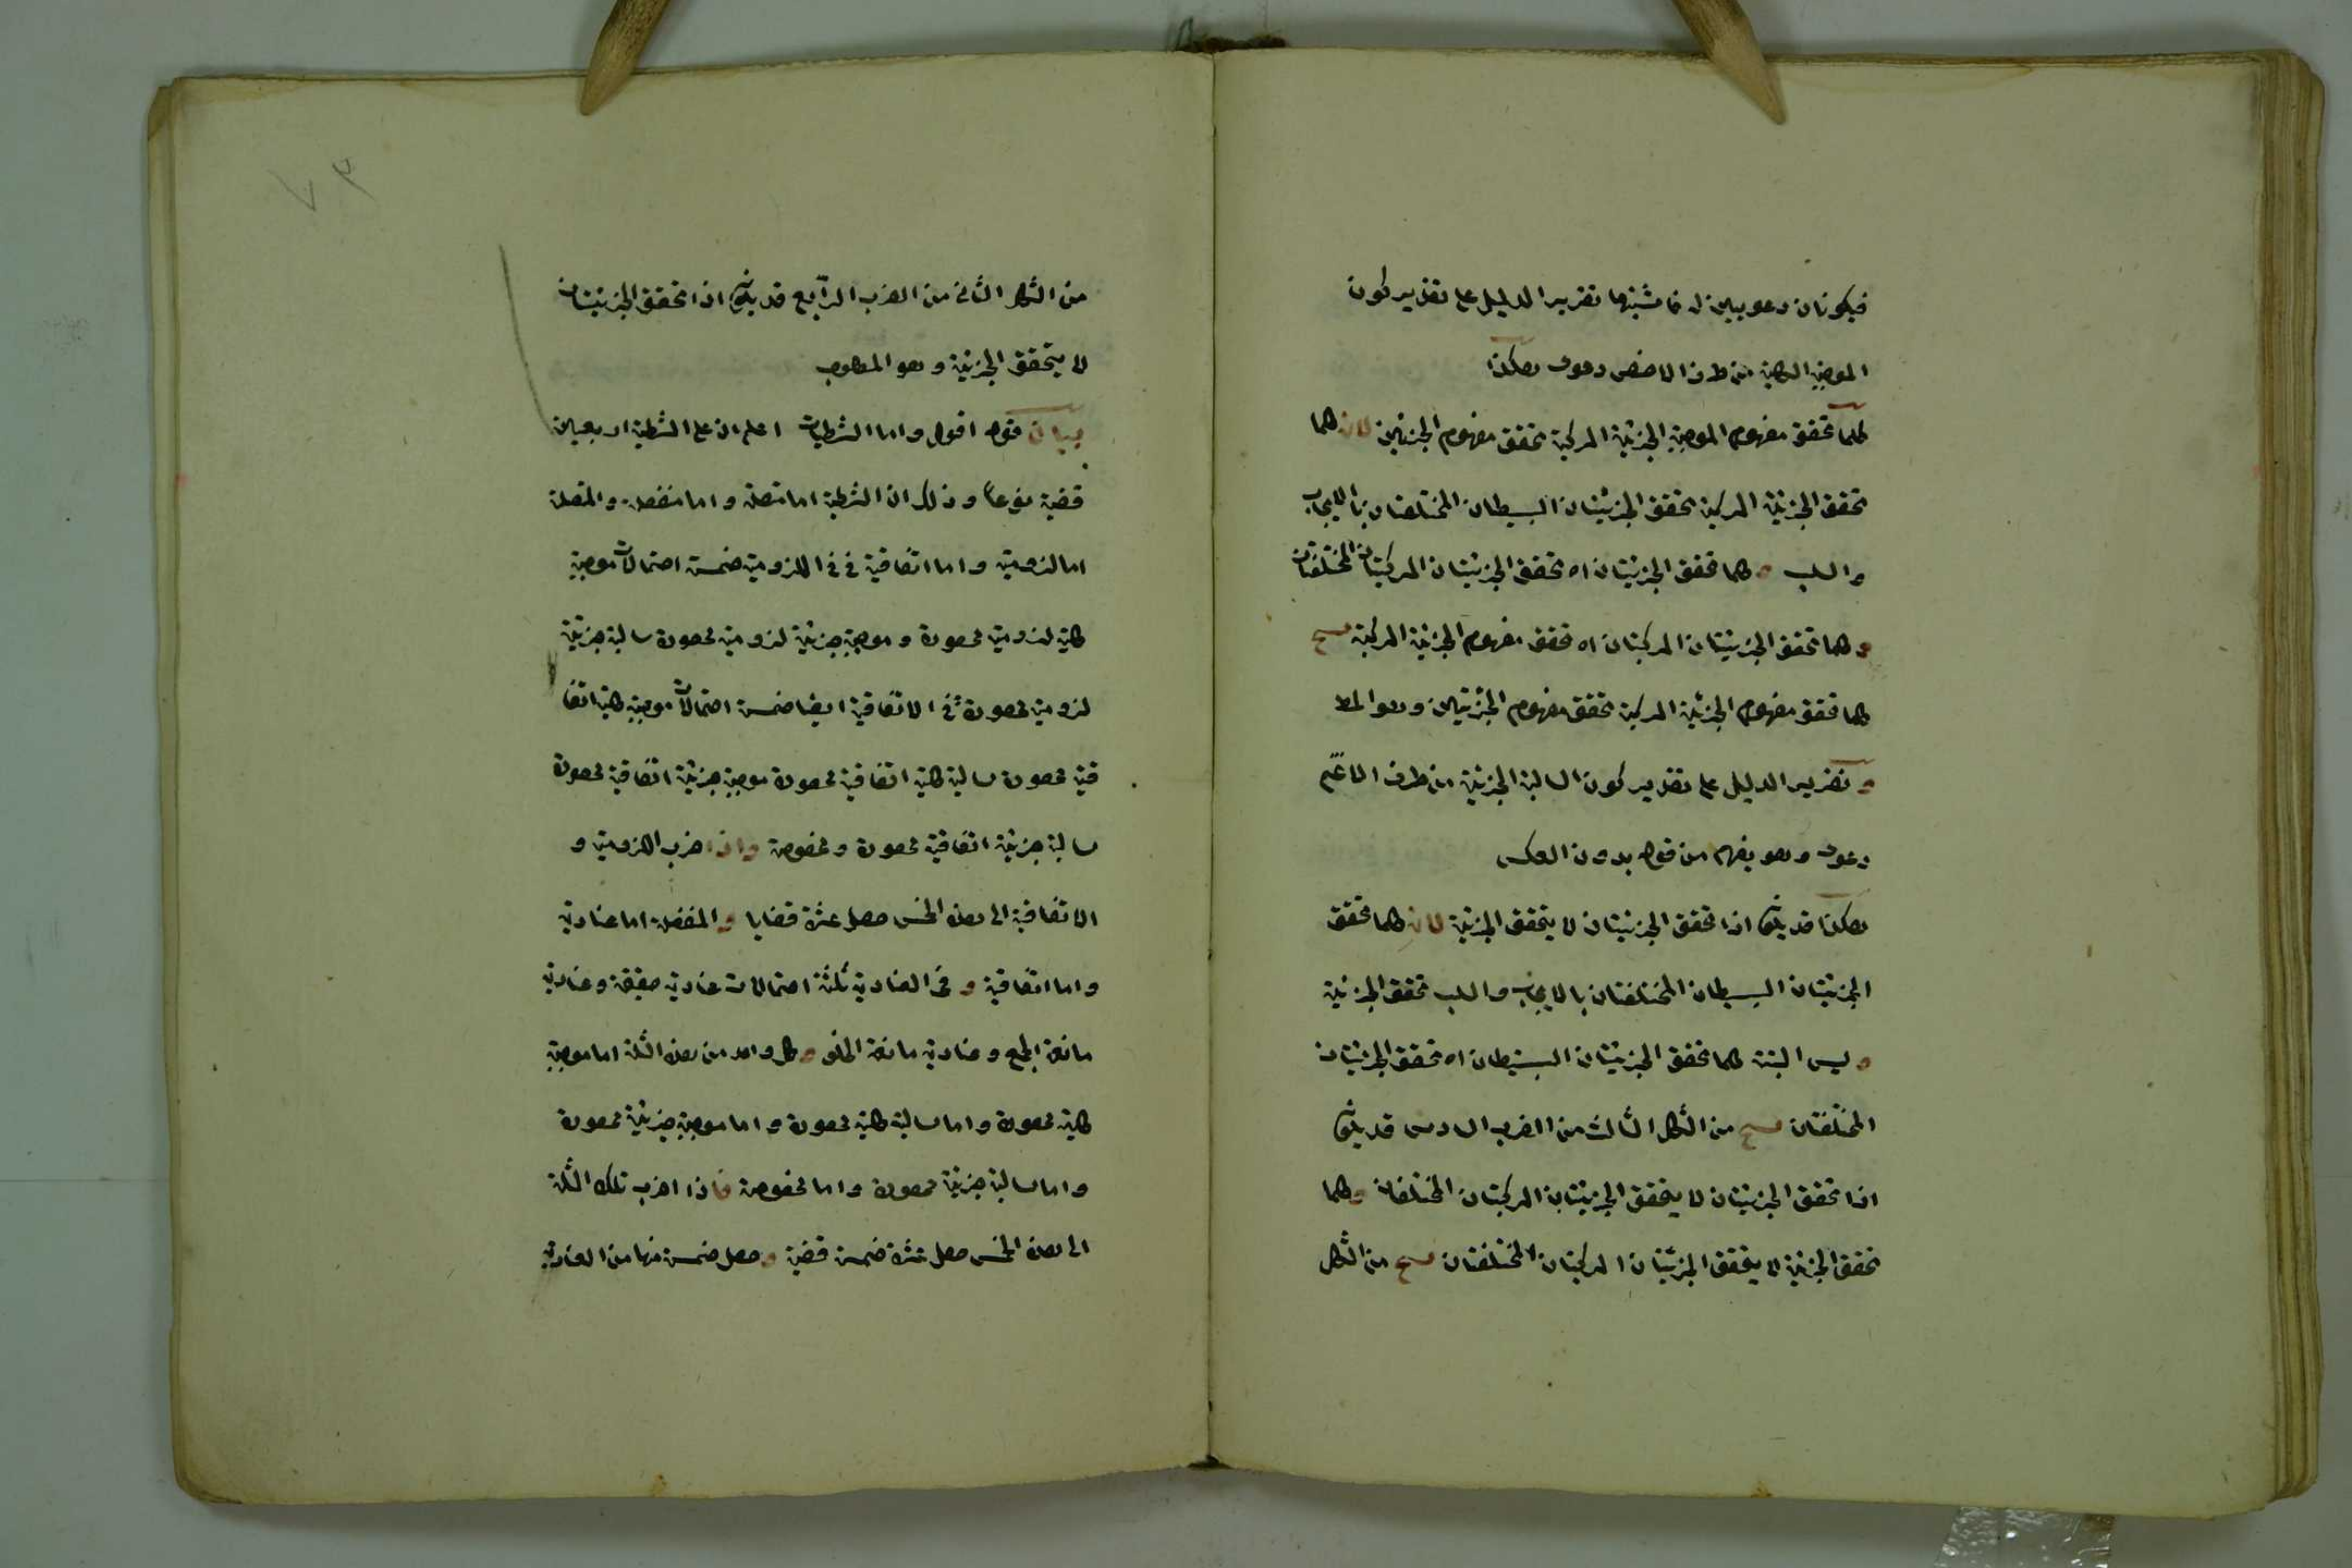 فيكونان دعويين له فاشبتها تقرير الدليل على تقدير كون
الموجبة الكلية من طرف الاخص دعوى هكذا
كلما تحقق مفهوم الموجبة الجزئية المركبة تحقق مفهوم الجزئيتين لان كلما
تحقق الجزئية المركبة تحقق الجزئيتان البسيطان المختلفتان بالايجاب
والسلب و كلما تحقق الجزئيتان اه تحقق الجزئيتان المركبتان المختلفتان
و كلما تحقق الجزئيتان المركبتان اه تحقق مفهوم الجزئية المركبة
كلما تحقق مفهوم الجزئية المركبة تحقق مفهوم الجزئيتين وهو المط
و تقرير الدليل على تقدير كون السالبة الجزئية من طرف الاعم
دعوى وهو يفهم من قوله بدون العكس
هكذا قد يكون اذا تحقق الجزئيتان لا يتحقق الجزئية لان كلما تحقق
الجزئيتان البسيطان المختلفتان بالايجاب والسلب تحقق الجزئية
و ليس البتة كلما تحقق الجزئيتان البسيطان اه تحقق الجزئيتان
المختلفتان من الشكل الثالث من الضرب السادس قد يكون
اذا تحقق الجزئيتان لا يتحقق الجزئيتان المركبتان المختلفتان و كلما
تحقق الجزئية لا يتحقق الجزئيتان المركبتان المختلفتان من الشكل
٧٣
من الشكل الثاني من الضرب الرابع قد يكون اذا تحقق الجزئيتان
لا يتحقق الجزئية وهو المطلوب
بيان قوله اقول واما الشطيات اعلم ان على الشطية اربعين
قضية نوعا وذلك ان الشطية اما متصلة واما منفصلة والمتصلة
اما لزومية واما اتفاقية ففي اللزومية خمسة احتمالات موجبة
كلية لزومية محصورة وموجبة جزئية لزومية محصورة سالبة جزئية
لزومية محصورة في الاتفاقية ايضا خمسة احتمالات موجبة كلية اتفا
قية محصورة سالبة كلية اتفاقية محصورة موجبة جزئية اتفاقية محصورة
سالبة جزئية اتفاقية محصورة ومخصوصة واذا ضرب اللزومية و
الاتفاقية الى هذه الخمس حصل عشرة قضايا و المنفصلة اما عنادية
واما اتفاقية و في العنادية ثلثة احتمالات عنادية حقيقة وعنادية
مانعة الجمع وعنادية مانعة الخلو و كل واحد من هذه الثلثة اما موجبة
كلية محصورة واما سالبة كلية محصورة واما موجبة جزئية محصورة
واما سالبة جزئية محصورة واما مخصوصة فاذا اضرب تلك الثلثة
الى هذه الخمس حصل عشرة خمسة قضية و حصل خمسة منها من العنادية